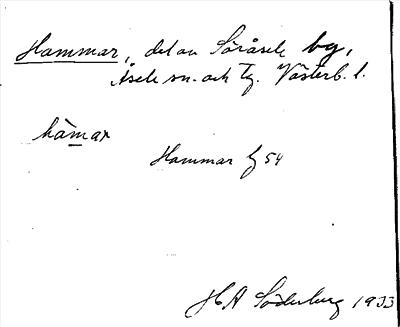 Hammar, del av Söråsele by,
Åsele sn. och tg. Västerb. l.
hàmar
Hammar fj 54
H A Söderberg 1933